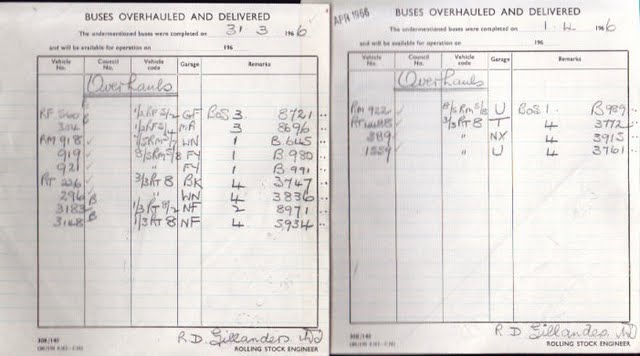 BUSES OVERHAULED AND DELIVERED
The undermentioned buses were completed on 31 3 1966
and will be available for operation on 196
Vehicle No. Council No. Vehicle code Garage Remarks
Overhauls
RF GF BOS 3 8721
304 MA 3 8696
RM 918 WN 1 B.645
919 FY 1 B.980
921 FY 1 B.991
RT 226 3/3RT8 BK 4 3747
296 " WN 4 3836
3183 B NF 2 8971
3168 1/3RT8 NF 4 5934
R.D. Gillanders
308/140
ROLLING STOCK ENGINEER
APR 1966
BUSES OVERHAULED AND DELIVERED
The undermentioned buses were completed on 1. 4. 1966
and will be available for operation on 196
Vehicle No. Council No. Vehicle code Garage Remarks
Overhauls
RM 922 U BOS 1. B.989
RT 3/3RT8 T 4 3772
389 " NX 4 3915
1559 " U 4 3761
R.D. Gillanders
308/140
ROLLING STOCK ENGINEER